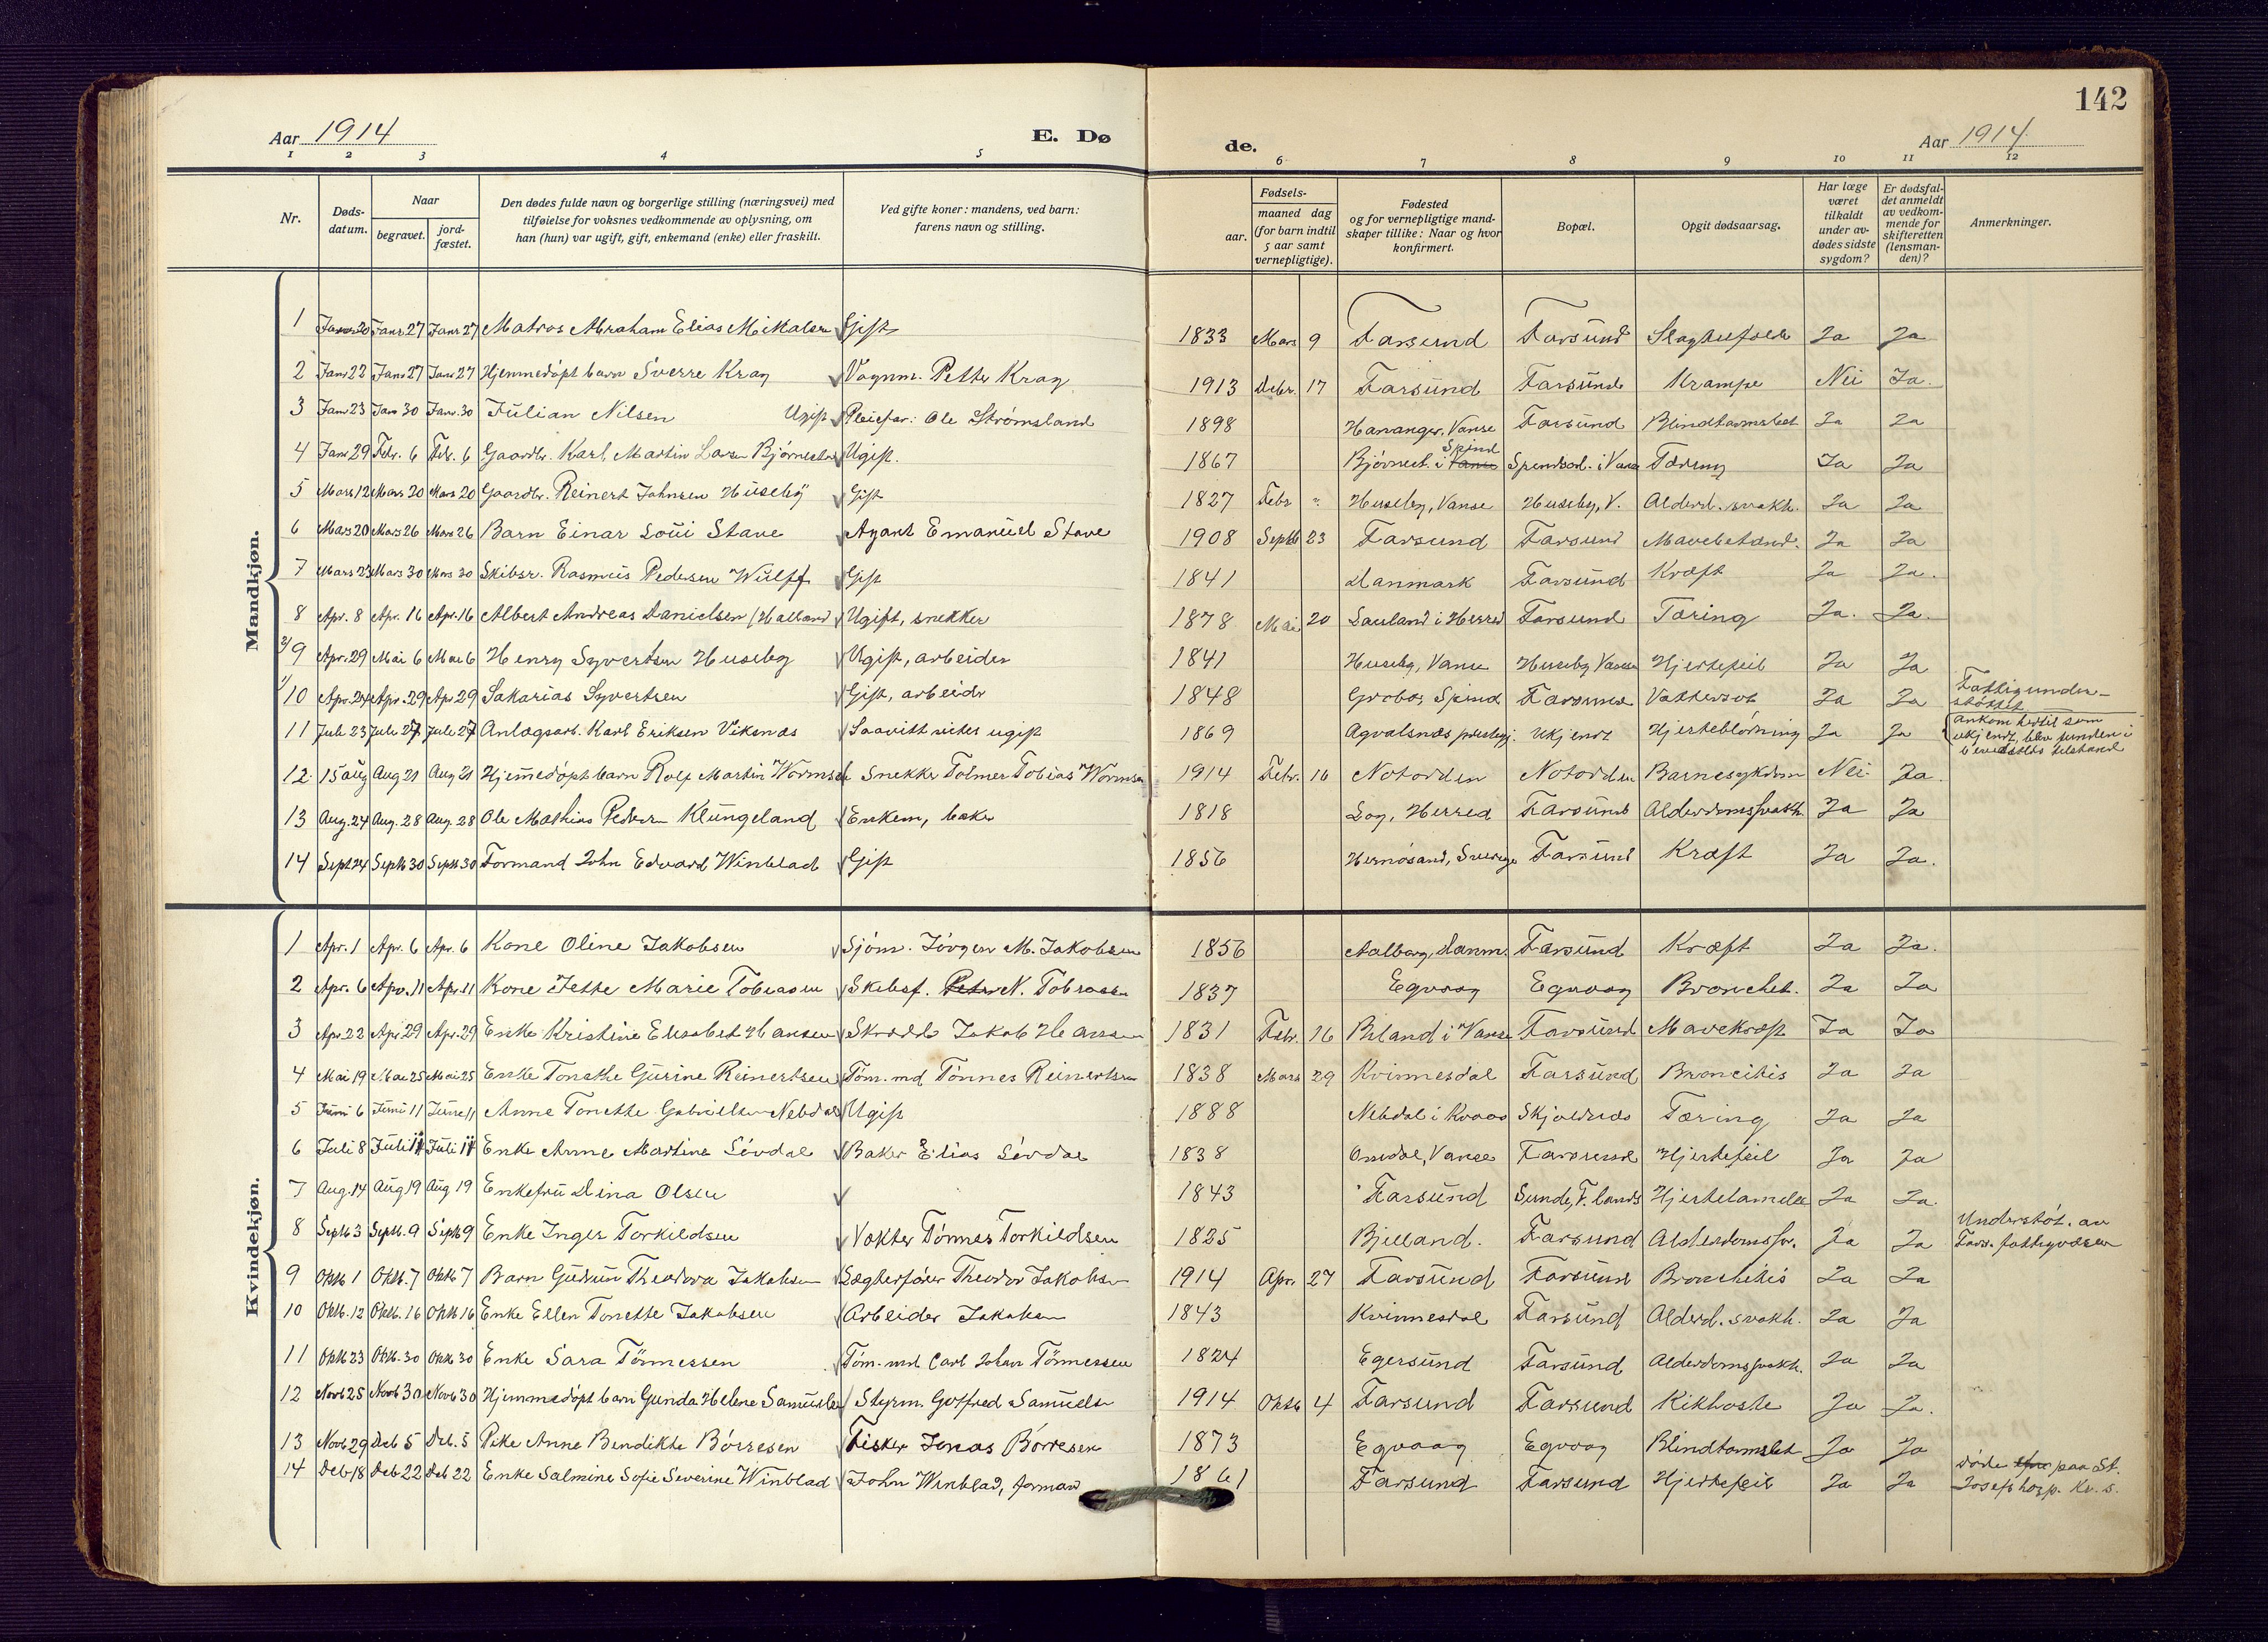 142
Aar 1914 E. Dø de. Aar 1914
1 2 3 4 5 6 7 8 9 10 11 12
Nr. Døds-datum. Naar begravet. jord-fæstet. Den dødes fulde navn og borgerlige stilling (næringsvei) med tilføielse for voksnes vedkommende av oplysning, om han (hun) var ugift, gift, enkemand (enke) eller fraskilt. Ved gifte koner: mandens, ved barn: farens navn og stilling. Fødsels- aar. maaned dag (for barn indtil 5 aar samt vernepligtige). Fødested og for vernepligtige mand-skaper tillike: Naar og hvor konfirmert. Bopæl. Opgit dødsaarsag. Har læge været tilkaldt under av-dødes sidste sygdom? Er dødsfal-det anmeldt av vedkom-mende for skifteretten (lensman-den)? Anmerkninger.
Mandkjøn.
1 Janr 20 Janr 27 Janr 27 Matros Abraham Elias Mikalsen Gift 1833 Mars 9 Farsund Farsund Slagtilfælde Ja Ja
2 Janr 22 Janr 27 Janr 27 Hjemmedøpt barn Sverre Krag Vognm. Petter Krag 1913 Debr. 17 Farsund Farsund Krampe Nei Ja.
3 Janr 23 Janr 30 Janr. 30 Julian Nilsen Ugift Pleiefar: Ole Strømsland 1898 Hananger, Vanse Farsund Blindtarmsbet Ja Ja
4 Janr 29 Febr. 6 Febr. 6 Gaardbr. Karl Martin Larsen Bjørnestad Ugift. 1867 Bjørnest. i Vanse Spind Spindsod. i Vanse Tæring Ja Ja
5 Mars 12 Mars 20 Mars 20 Gaardbr. Reinert Johnsen Huseby Gift 1827 Febr " Huseby, Vanse Huseby, V. Alderd. svakh. Ja Ja
6 Mars 20 Mars 26 Mars 26 Barn Einar Loui Stave Agent Emanuel Stave 1908 Septb 23 Farsund Farsund Mavebetænd. Ja Ja
7 Mars 23 Mars 30 Mars 30 Skibsr. Rasmus Pedersen Wulff Gift 1841 Danmark Farsund Kræft Ja Ja.
8 Apr. 8 Apr. 16 Apr. 16 Albert Andreas Danielsen (Halland Ugift, snekker 1878 Mai 20 Sauland i Herred Farsund Tæring Ja. Ja.
2/ 9 Apr. 29 Mai 6 Mai 6 Henry Syvertsen Huseby Ugift, arbeider 1841 Huseby, Vanse Huseby Vanse Hjertefeil Ja Ja
1/ 10 Apr. 24 Apr. 29 Apr 29 Sakarias Syvertsen Gift, arbeidr 1848 Spind Farsund Vattersot Ja Ja Fattigunder-støttet
11 Juli 23 Juli 27 Juli 27 Anlægsarb. Karl Eriksen Viksnæs Saavitt vites ugift 1869 Agvalsnæs prestegj. Ukjendt Hjerteblødning Ja Ja ankom hertil som ukjendt, blev funden i bevidstløs tilstand
12. 15 aug Aug 21 Aug 21 Hjemmedøpt barn Rolf Martin Wormsen Snekker Tolmer Tobias Wormsen 1914 Febr. 16 Notodden Notodden Barnesykdom Nei Ja.
13 Aug. 24 Aug. 28 Aug. 28 Ole Mathias Pedersen Klungeland Enkem, baker 1818 Log, Herred Farsund Alderdomssvakh. Ja Ja
14 Septb 24 Septb 30 Septb 30 Formand John Edvard Winblad Gift 1856 Hernøsand, Sverige Farsund Kræft Ja Ja.
Kvindekjøn.
1 Apr. 1 Apr. 6 Apr. 6 Kone Oline Jakobsen Sjøm. Jørgen M. Jakobsen 1856 Aalborg, Danm. Farsund Kræft Ja Ja.
2 Apr. 6 Apr. 11 Apr 11 Kone Jette Marie Tobiasen Skibsf. Peter N. Tobiassen 1837 Egvaag Egvaag Bronchit. Ja Ja
3 Apr 22 Apr 29 Apr. 29 Enke Kristine Elisabet Hansen Jakob Hansen 1831 Febr. 16 Briland i Vanse Farsund Mavekræft Ja Ja
4 Mai 19 Mai 25 Mai 25 Enke Tonethe Gurine Reinertsen Tøm.md Tønnes Reinertsen 1838 Mars 29 Kvinnesdal Farsund Broncitis Ja Ja
5 Juni 6 Juni 11 Juni 11 Anne Tonette Gabrielsen Nebdal Ugift 1888 Nebdal i Kvaas Skjoldnæs Tæring Ja Ja
6 Juli 8 Juli 14 Juli 14 Enke Anne Martine Løvdal Baker Elias Løvdal 1838 Omdal, Vanse Farsund Hjertefeil Ja Ja
7 Aug. 14 Aug 19 Aug 19 Enkefru Dina Olsen 1843 Farsund Sunde, F. lands Hjertelamelse Ja Ja.
8 Septb 3 Septb. 9 Septb 9 Enke Inger Torkildsen Vokter Tønnes Torkildsen 1825 Bjelland. Farsund Alderdomssv. Ja Ja Understøt. av Fars. fattigvæsen
9 Oktb 1 Oktb. 7 Oktb 7 Barn Gudrun Theodora Jakobsen Theodor Jakobsen 1914 Apr. 27 Farsund Farsund Bronchitis Ja Ja
10 Oktb. 12 Oktb. 16 Oktb 16 Enke Ellen Tonette Jakobsen Arbeider Jakobsen 1843 Kvinnesdal Farsund Alderd. svakh. Ja Ja
11 Oktb 23 Oktb. 30 Oktb 30 Enke Sara Tønnessen Tøm.md. Carl Johan Tønnessen 1824 Egersund Farsund Alderdomssvakh. Ja Ja
12 Novb 25 Novb 30 Novb 30 Hjemmedøpt barn Gunda Helene Samuelsen Styrm. Gotfred Samuelsen 1914 Oktb 4 Farsund Farsund Kikhoste Ja Ja.
13 Novb 29 Deb 5 Deb. 5 Pike Anne Bendikte Børresen Fisker Jonas Børresen 1873 Egvaag Egvaag Blindtarmsbet Ja Ja
14 Deb 18 Deb 22 Deb 22 Enke Salmine Sofie Severine Winblad John Winblad, formand 1861 Farsund Farsund Hjertefeil Ja Ja døde paa St. Josefs hosp. Kr. s.